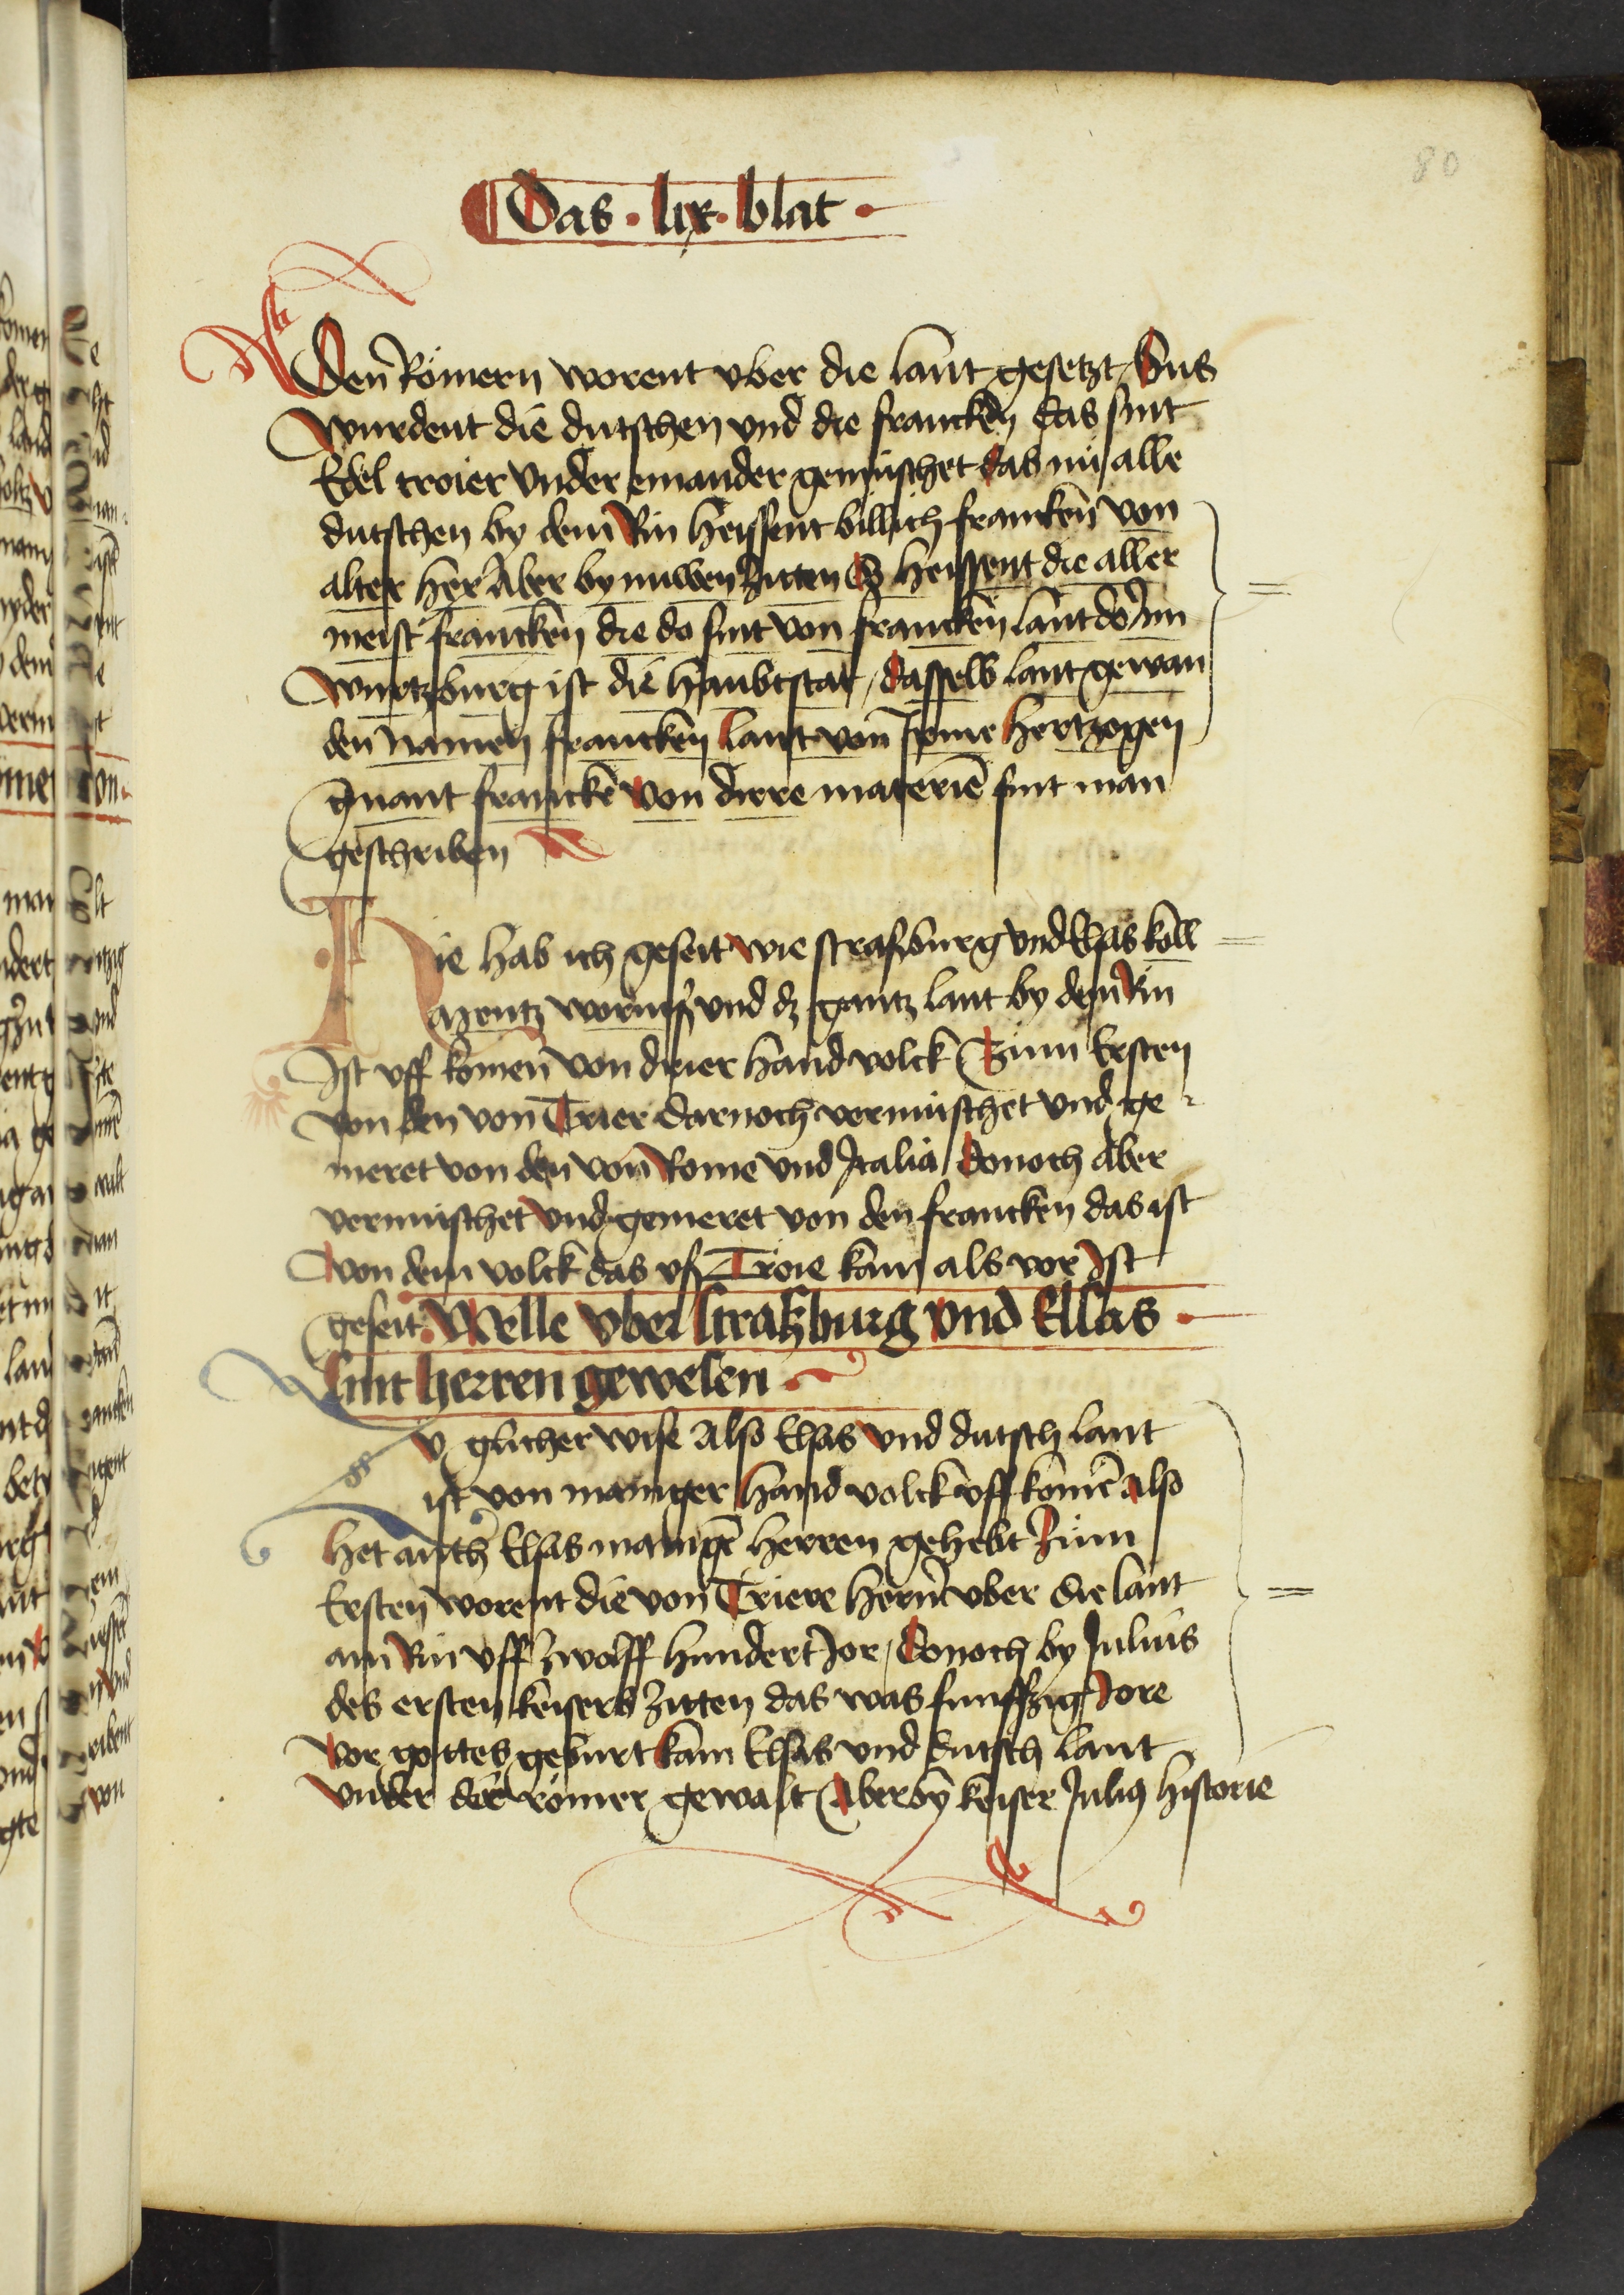 80
Das · lix · blat ·
Den Römern worent vber die lant gesetzt / Sus
wurdent die dutschen vnd die francken das sint
Edel troier vnder einander gemischet das nu alle
dutschen by dem Rin heissent billich francken von
alter her Aber by nuwen zitten So heissent die aller
meist francken die do sint von francken lant do Inn
wurtzburg ist die haubtstat / dasselb lant gewan
den namen francken lant von seime hertzogen
gnant francke von dirre materie sint man
geschriben
Hie hab ich geseit wie strasburg vnd Elsas köll
Mentz worms vnd dz gantz lant by dem Rin
Ist vff komen von drier hand volck Zum Ersten
von den von Trier darnoch vermischet vnd ge
meret von den von Rome vnd Italia donoch Aber
vermischet vnd gemeret von den francken das ist
von dem volck das vs Troie kam als vor Ist
geseit Welle vber straßburg vnd Elsas ·
sint herren gewesen
Zu glicher wise Also Elsas vnd dutsch lant
ist von maniger hand volck vff komē also
het auch Elsas mangē herren gehebt Zum
Ersten worent die von Triere hern vber die lant
am Rin vff zwölff hundert Jor / donoch by Julius
des ersten keisers zitten das was funffzig Jore
vor gottes geburt kam Elsas vnd dutsch lant
vnder der römer gewalt Aber by keiser Julius historie